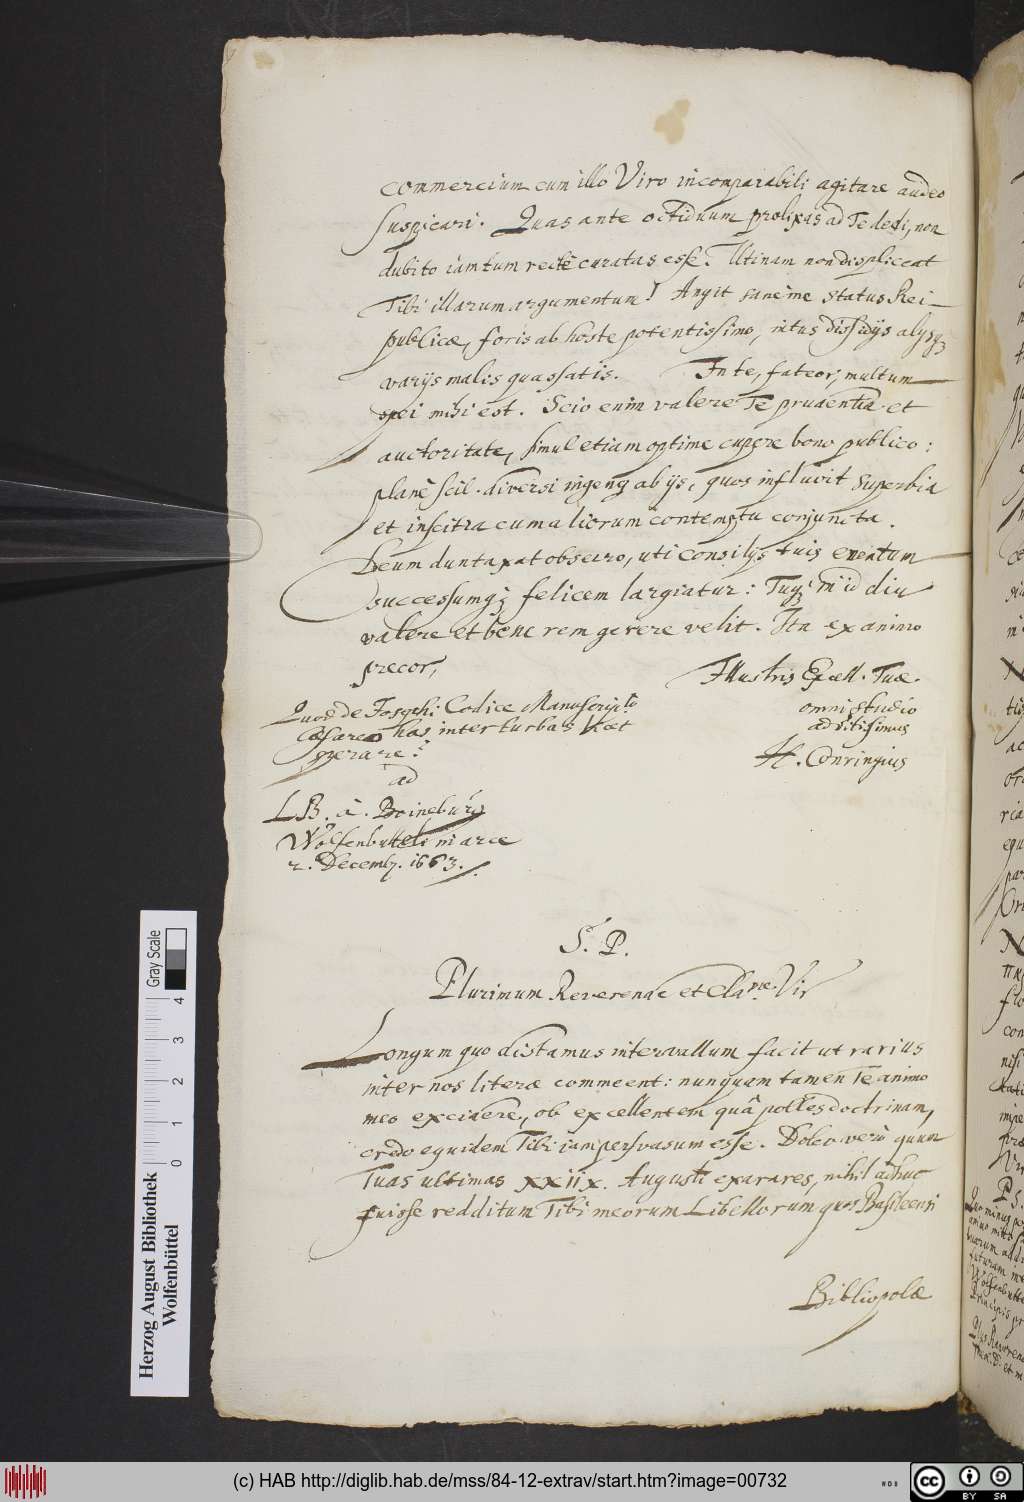 commercium cum illo Viro incomparabili agitare audeo
suspicari. Quas ante octiduum prolixas ad Te dedi, non
dubito iam tum rectè curatas esse. Utinam non displiceat
Tibi illarum argumentum! Angit sanè me status Rei-
publicæ, foris ab hoste potentissimo, intus dissidijs alijsq;
varijs malis quassatis. In te, fateor, multum
spei mihi est. Scio enim valere Te prudentia et
auctoritate, simul etiam optime cupere bono publico:
planè scil. diversi ingenij ab ijs, quos influvit superbia
et inscitia cum aliorum contemptu conjuncta.
Deum duntaxat obsecro, uti consilijs tuis eventum
successumq; felicem largiatur: Tuq; diu
valere et bene rem gerere velit. Ita ex animo
precor,
Illustris Excell. Tuæ.
omni studio
additisimus
H. Conringius
Quod de Codice Manuscripto
Cæsareo has inter turbas licet
sperare?
ad
L. B. à. Boineburg
Wolfenbutteli in arce
2. Decemb. 1663.
S. P.
Plurimum Reverende et Clarme. Vir
Longum quo distamus intervallum facit ut rarius
inter nos literæ commeent: nunquam tamen Te animo
meo excidere, ob excellentem quâ polles doctrinam,
credo equidem Tibi iam persvasum esse. Doleo verò quum
Tuas ultimas xxiix. Augusti exarares, nihil adhuc
fuisse redditum Tibi meorum Libellorum quos Basileensi
Bibliopolæ
Herzog August Bibliothek
Wolfenbüttel
0 1 2 3 4
Gray Scale
(c) HAB http://diglib.hab.de/mss/84-12-extrav/start.htm?image=00732
cc BY SA